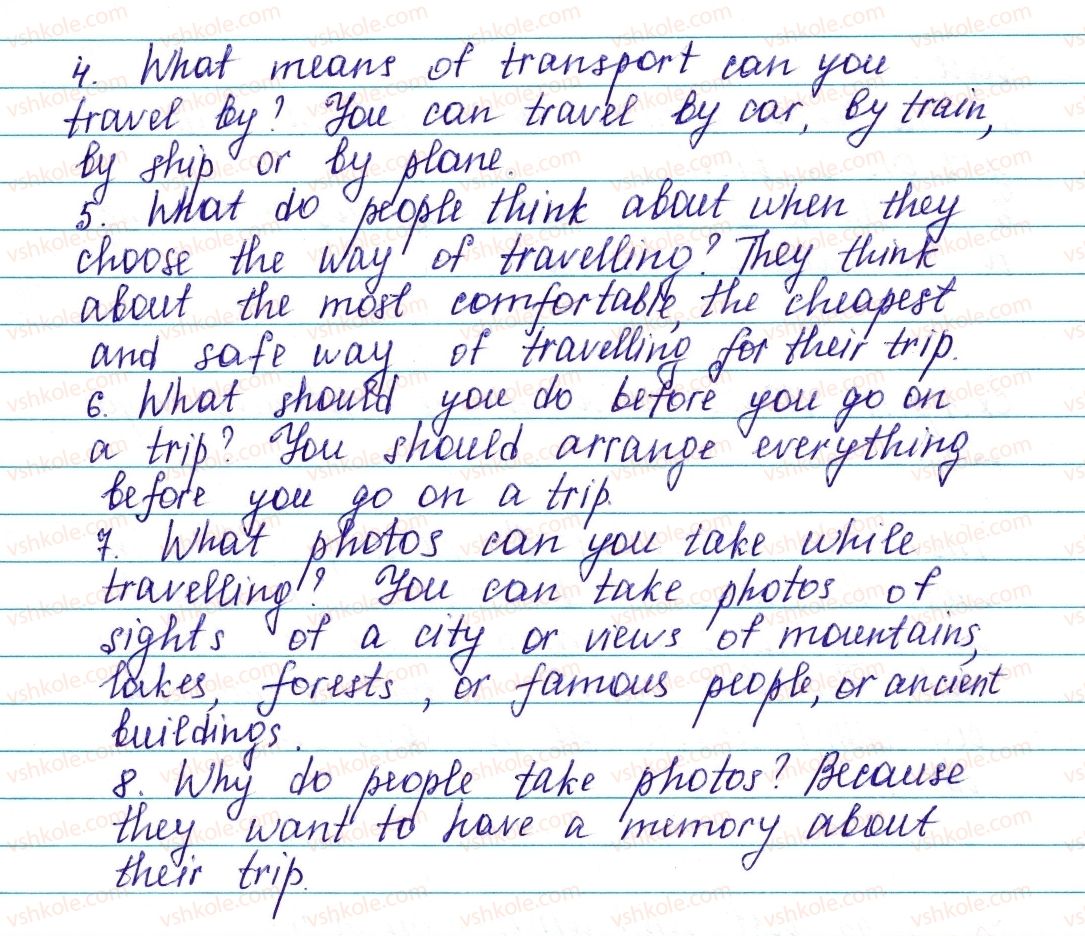 4. What means of transport can you
travel by? You can travel by car, by train,
by ship or by plane.
5. What do people think about when they
choose the way of travelling? They think
about the most comfortable, the cheapest
and safe way of travelling for their trip.
6. What should you do before you go on
a trip? You should arrange everything
before you go on a trip.
7. What photos can you take while
travelling? You can take photos of
sights of a city or views of mountains,
lakes, forests, or famous people, or ancient
buildings.
8. Why do people take photos? Because
they want to have a memory about
their trip.
vshkole.com